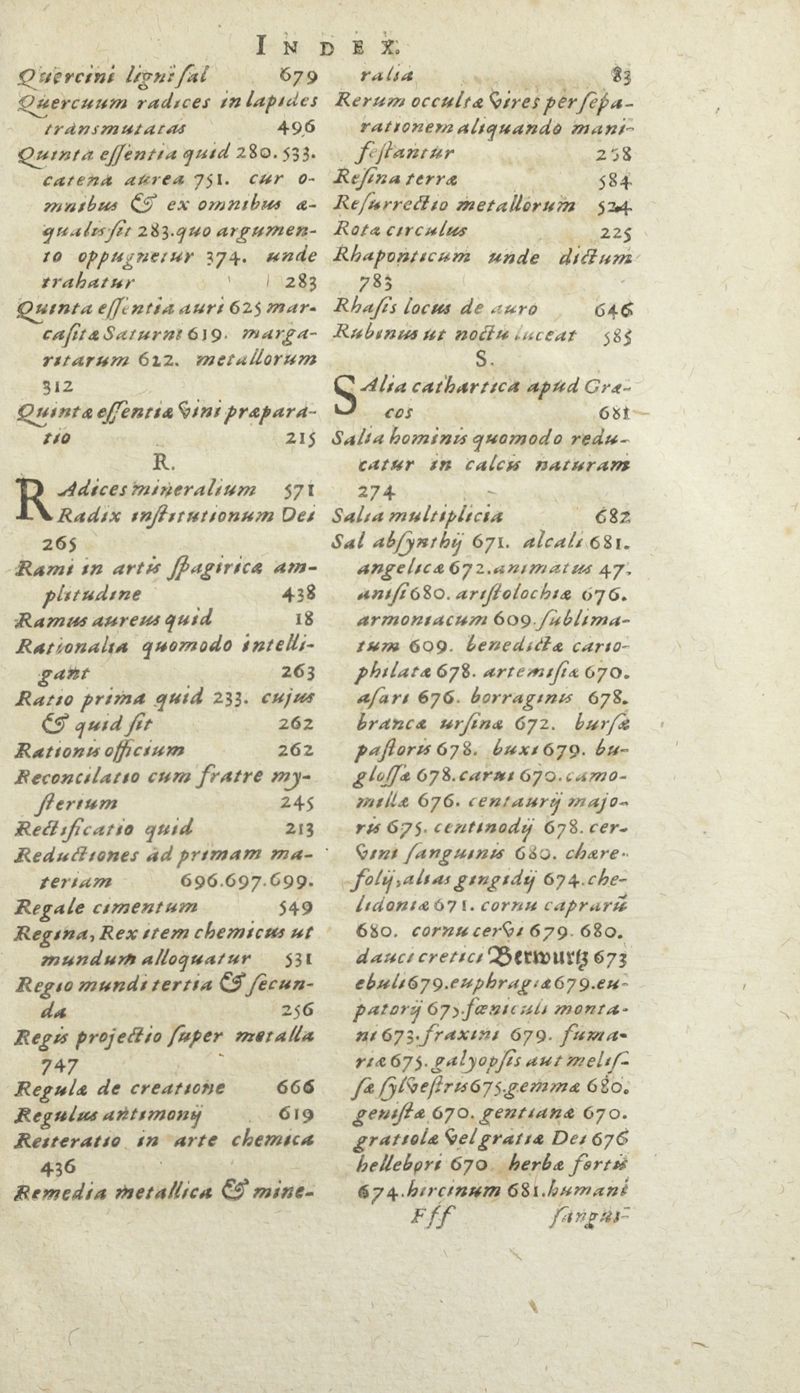 INDEX.
Quercini ligni sal 679
Quercuum radices in lapides
transmutatas 496
Quinta essentia quid 280. 533.
catena aurea 751. cur o-
mnibus & ex omnibus æ-
qualis sit 283. quo argumen-
to oppugnetur 374. unde
trahatur 283
Quinta essentia auri 625 mar-
casitæ Saturni 619. marga-
ritarum 622. metallorum
312
Quintæ essentiæ vini præpara-
tio 215
R.
RAdices mineralium 571
Radix institutionum Dei
265
Rami in artis spagiricæ am-
plitudine 438
Ramus aureus quid 18
Rationalia quomodo intelli-
gant 263
Ratio prima quid 233. cujus
& quid sit 262
Rationis officium 262
Reconcilatio cum fratre my-
sterium 245
Rectificatio quid 213
Reductiones ad primam ma-
teriam 696.697.699.
Regale cimentum 549
Regina, Rex item chemicus ut
mundum alloquatur 531
Regio mundi tertia & secun-
da 256
Regis projectio super metalla
747
Regulæ de creatione 666
Regulus antimonij 619
Reiteratio in arte chemica
436
Remedia metallica & mine-
ralia 83
Rerum occultæ vires per sepa-
rationem aliquando mani-
festantur 258
Resina terræ 584
Resurrectio metallorum 524
Rota circulus 225
Rhaponticum unde dictum
783
Rhasis locus de auro 646
Rubinus ut noctu luceat 585
S.
SAlia cathartica apud Græ-
cos 681
Salia hominis quomodo redu-
catur in calcis naturam
274
Salia multiplicia 682
Sal absynthij 671. alcali 681.
angelicæ 672. animatus 47.
anisi 680. aristolochiæ 676.
armoniacum 609. sublima-
tum 609. benedictæ cario-
philatæ 678. artemisiæ 670.
asari 676. borraginis 678.
brancæ ursinæ 672. bursæ
pastoris 678. buxi 679. bu-
glossæ 678. carui 670. camo-
millæ 676. centaurij majo-
ris 675. centinodij 678. cer-
vini sanguinis 680. chære-
folij, alias gingidij 674. che-
lidoniæ 671. cornu caprarū
680. cornu cervi 679. 680.
dauci cretici Berwurtz 673
ebuli 679. euphragiæ 679. eu-
patorij 675. fœniculi monta-
ni 673. fraxini 679. fuma-
riæ 675. galyopsis aut melis-
sæ sylvestris 675. gemmæ 680.
genistæ 670. gentianæ 670.
gratiolæ vel gratiæ Dei 676
hellebori 670 herbæ fortis
674. hircinum 681. humani
Fff sangui-